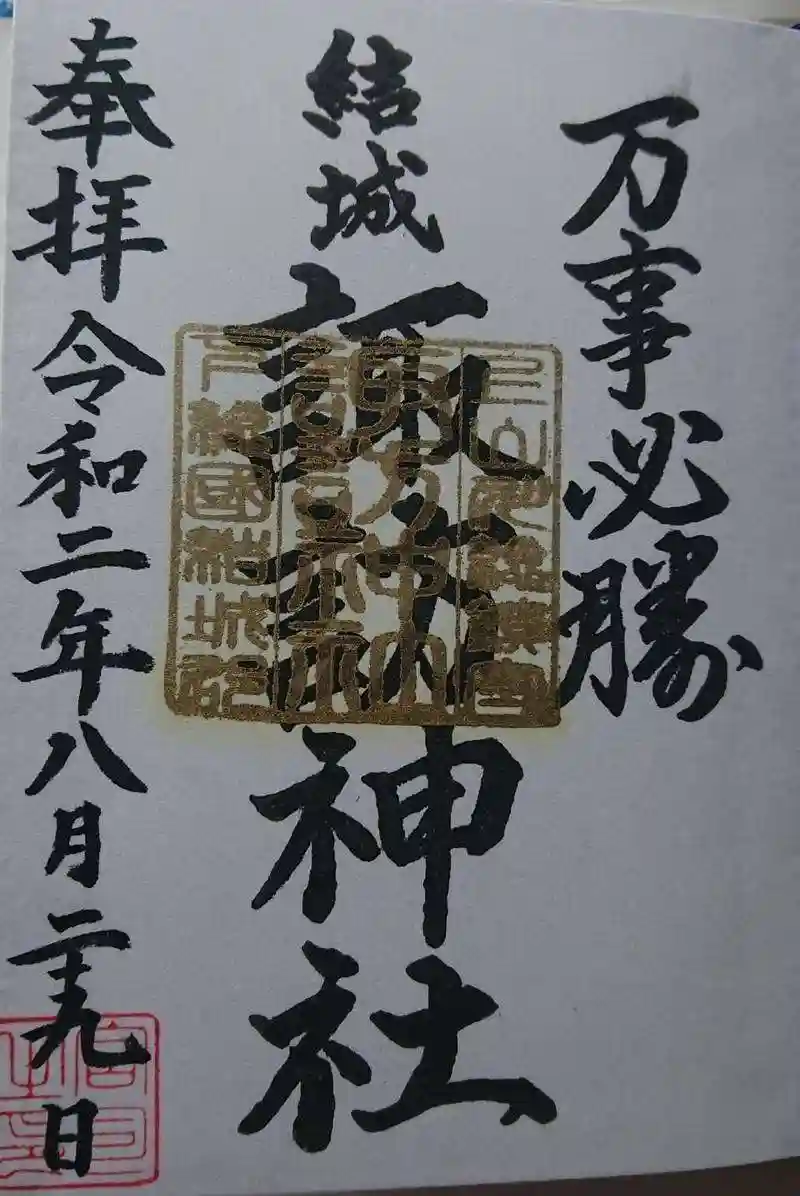 万事必勝
結城
諏訪神社
奉拝 令和二年八月二十九日
諏訪神社